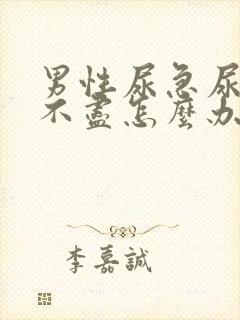 男性尿急尿
不盡怎麼办
李嘉誠